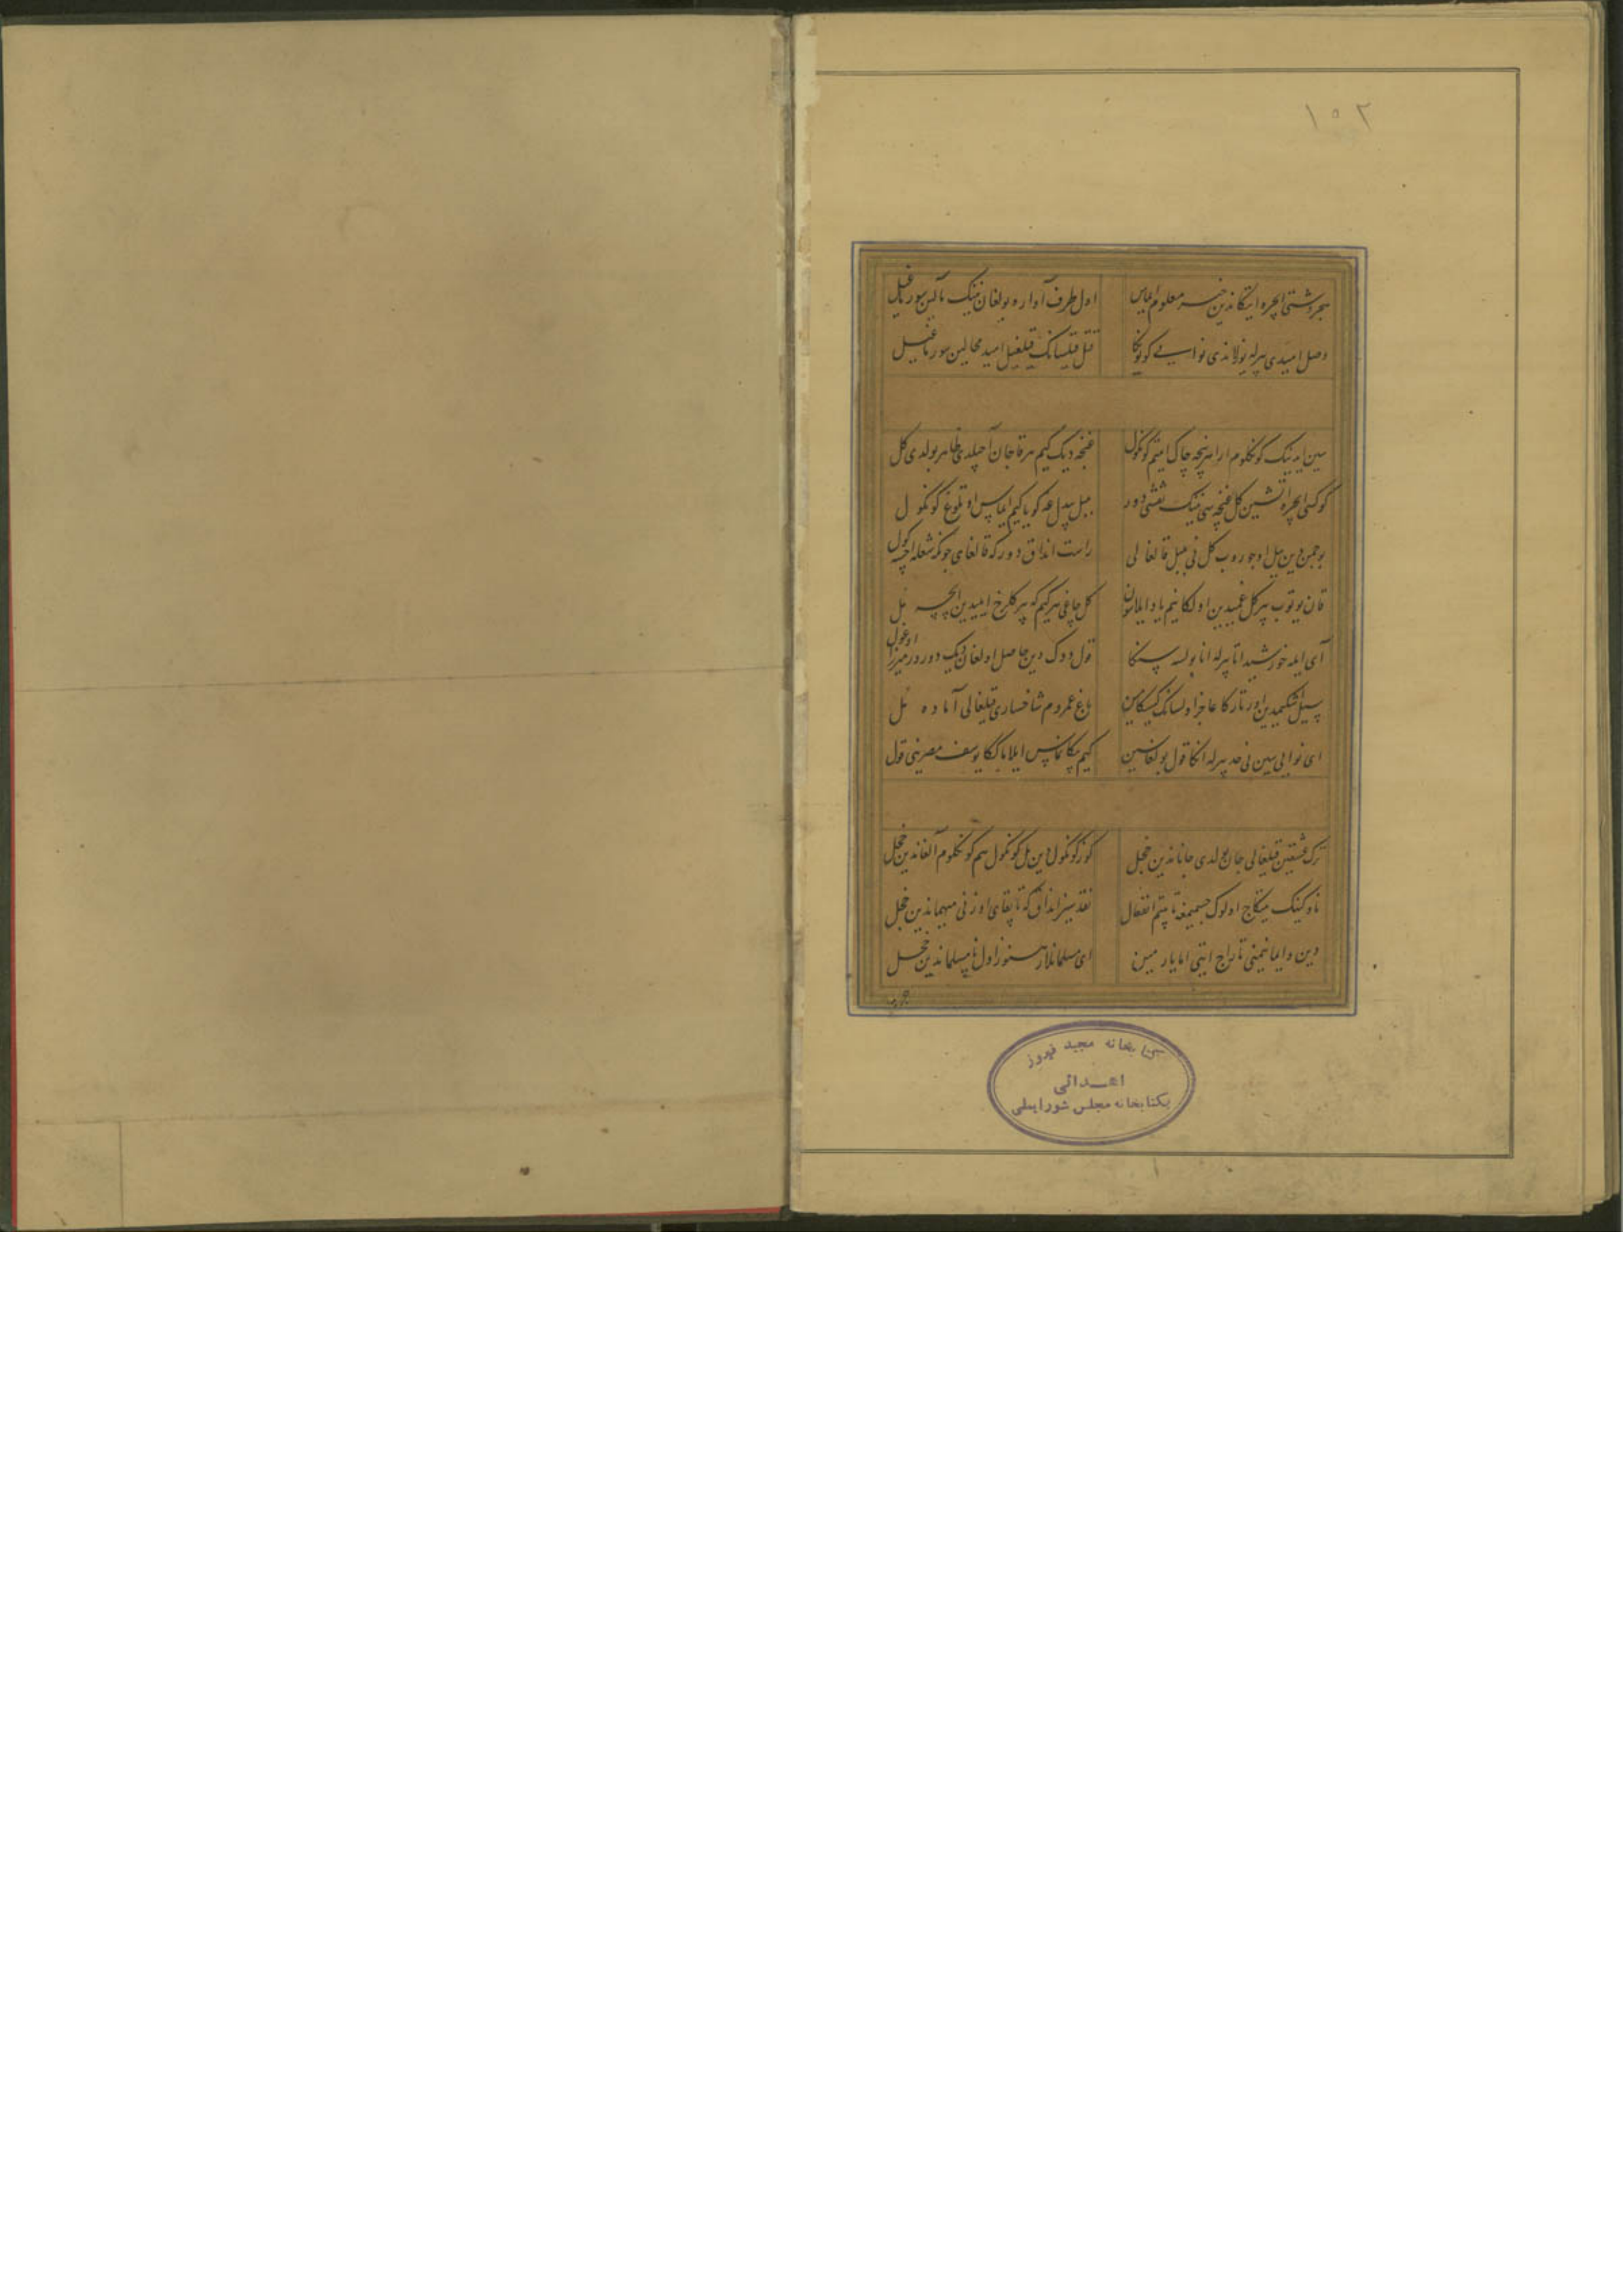 ١٥٢
هجر دشتی ایچره ایتکاندین خبر معلوم ایماس اول طرف آواره بولغان نینک مآلین سورماغیل
وصل امیدی بیرله یولاندی نوایی کویونکا قتل قیلسانک قیلغیل امید محالین سورماغیل
سین ایدینک کونکلوم ارا هر نیچه چاک ایتیم کونکول غنچه دیک کیم هر قاچان آچیلدی ظاهر بولدی کل
کوکسی ایچره آتشین کل غنچه سی نینک نقشی دور بلبل بیدل غه کویا کیم ایماس اوتلوغ کونکول
بو چمن دین ییل اوچوروب کل نی بلبل قالغالی راست انداق دور که قالغای چونکه شعله اوچسه کول
قان یوتوب بیر کل غمیدین اولکانیم یاد ایلانون کل چاغی هر کیم که بیر کلرخ الیدین ایچسه مل
آی ایله خورشید اتا بیرله انا بولسه سنکا قول دوک دین حاصل اولغان دیک دورور میرزا اوغول
سیل اشکیمدین اورتارکا عاجز اولسانک کیسکامین باغ عمروم شاخساری قیلغالی آماده پل
ای نوایی سین نی حد بیرله انکا قول بولغاسین کیم یکانماس ایلاماککا یوسف مصرینی قول
ترک عشقین قیلغالی جان بولدی جاناندین خجل کوز کونکول دین بل کونکول هم کونکلوم آلغاندین خجل
ناوکینک ییتکاچ اولوک جسمیمغه تاپتیم انفعال نقدسیز انداق که تاپقای اوزنی مهماندین خجل
دین و ایمانیمنی تاراج ایتی اما یار مین ای مسلمانلار هنوز اول نامسلماندین خجل
کتابخانه مجید فیروز
اهدائی
بکتابخانه مجلس شورایملی